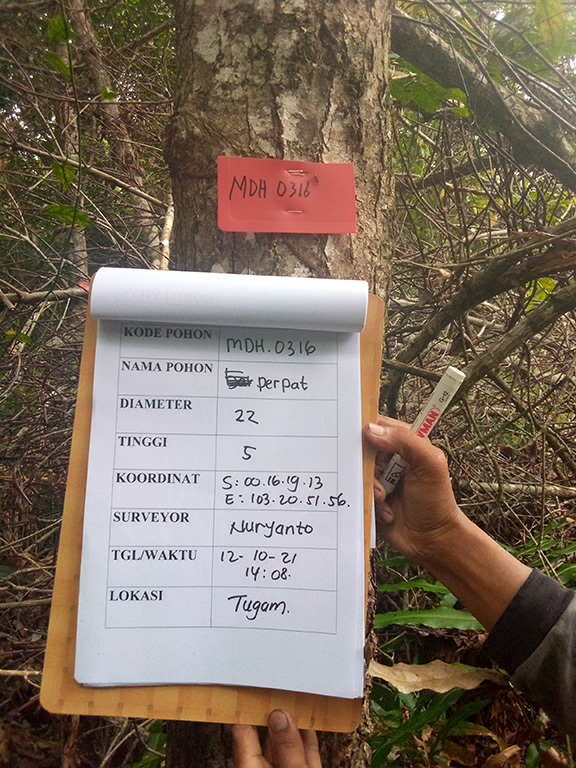 MDH 0316
KODE POHON MDH.0316
NAMA POHON perpat
DIAMETER 22
TINGGI 5
KOORDINAT S: 00.16.19.13
E: 103.20.51.56.
SURVEYOR Nuryanto
TGL/WAKTU 12-10-21
14:08.
LOKASI Tugam.